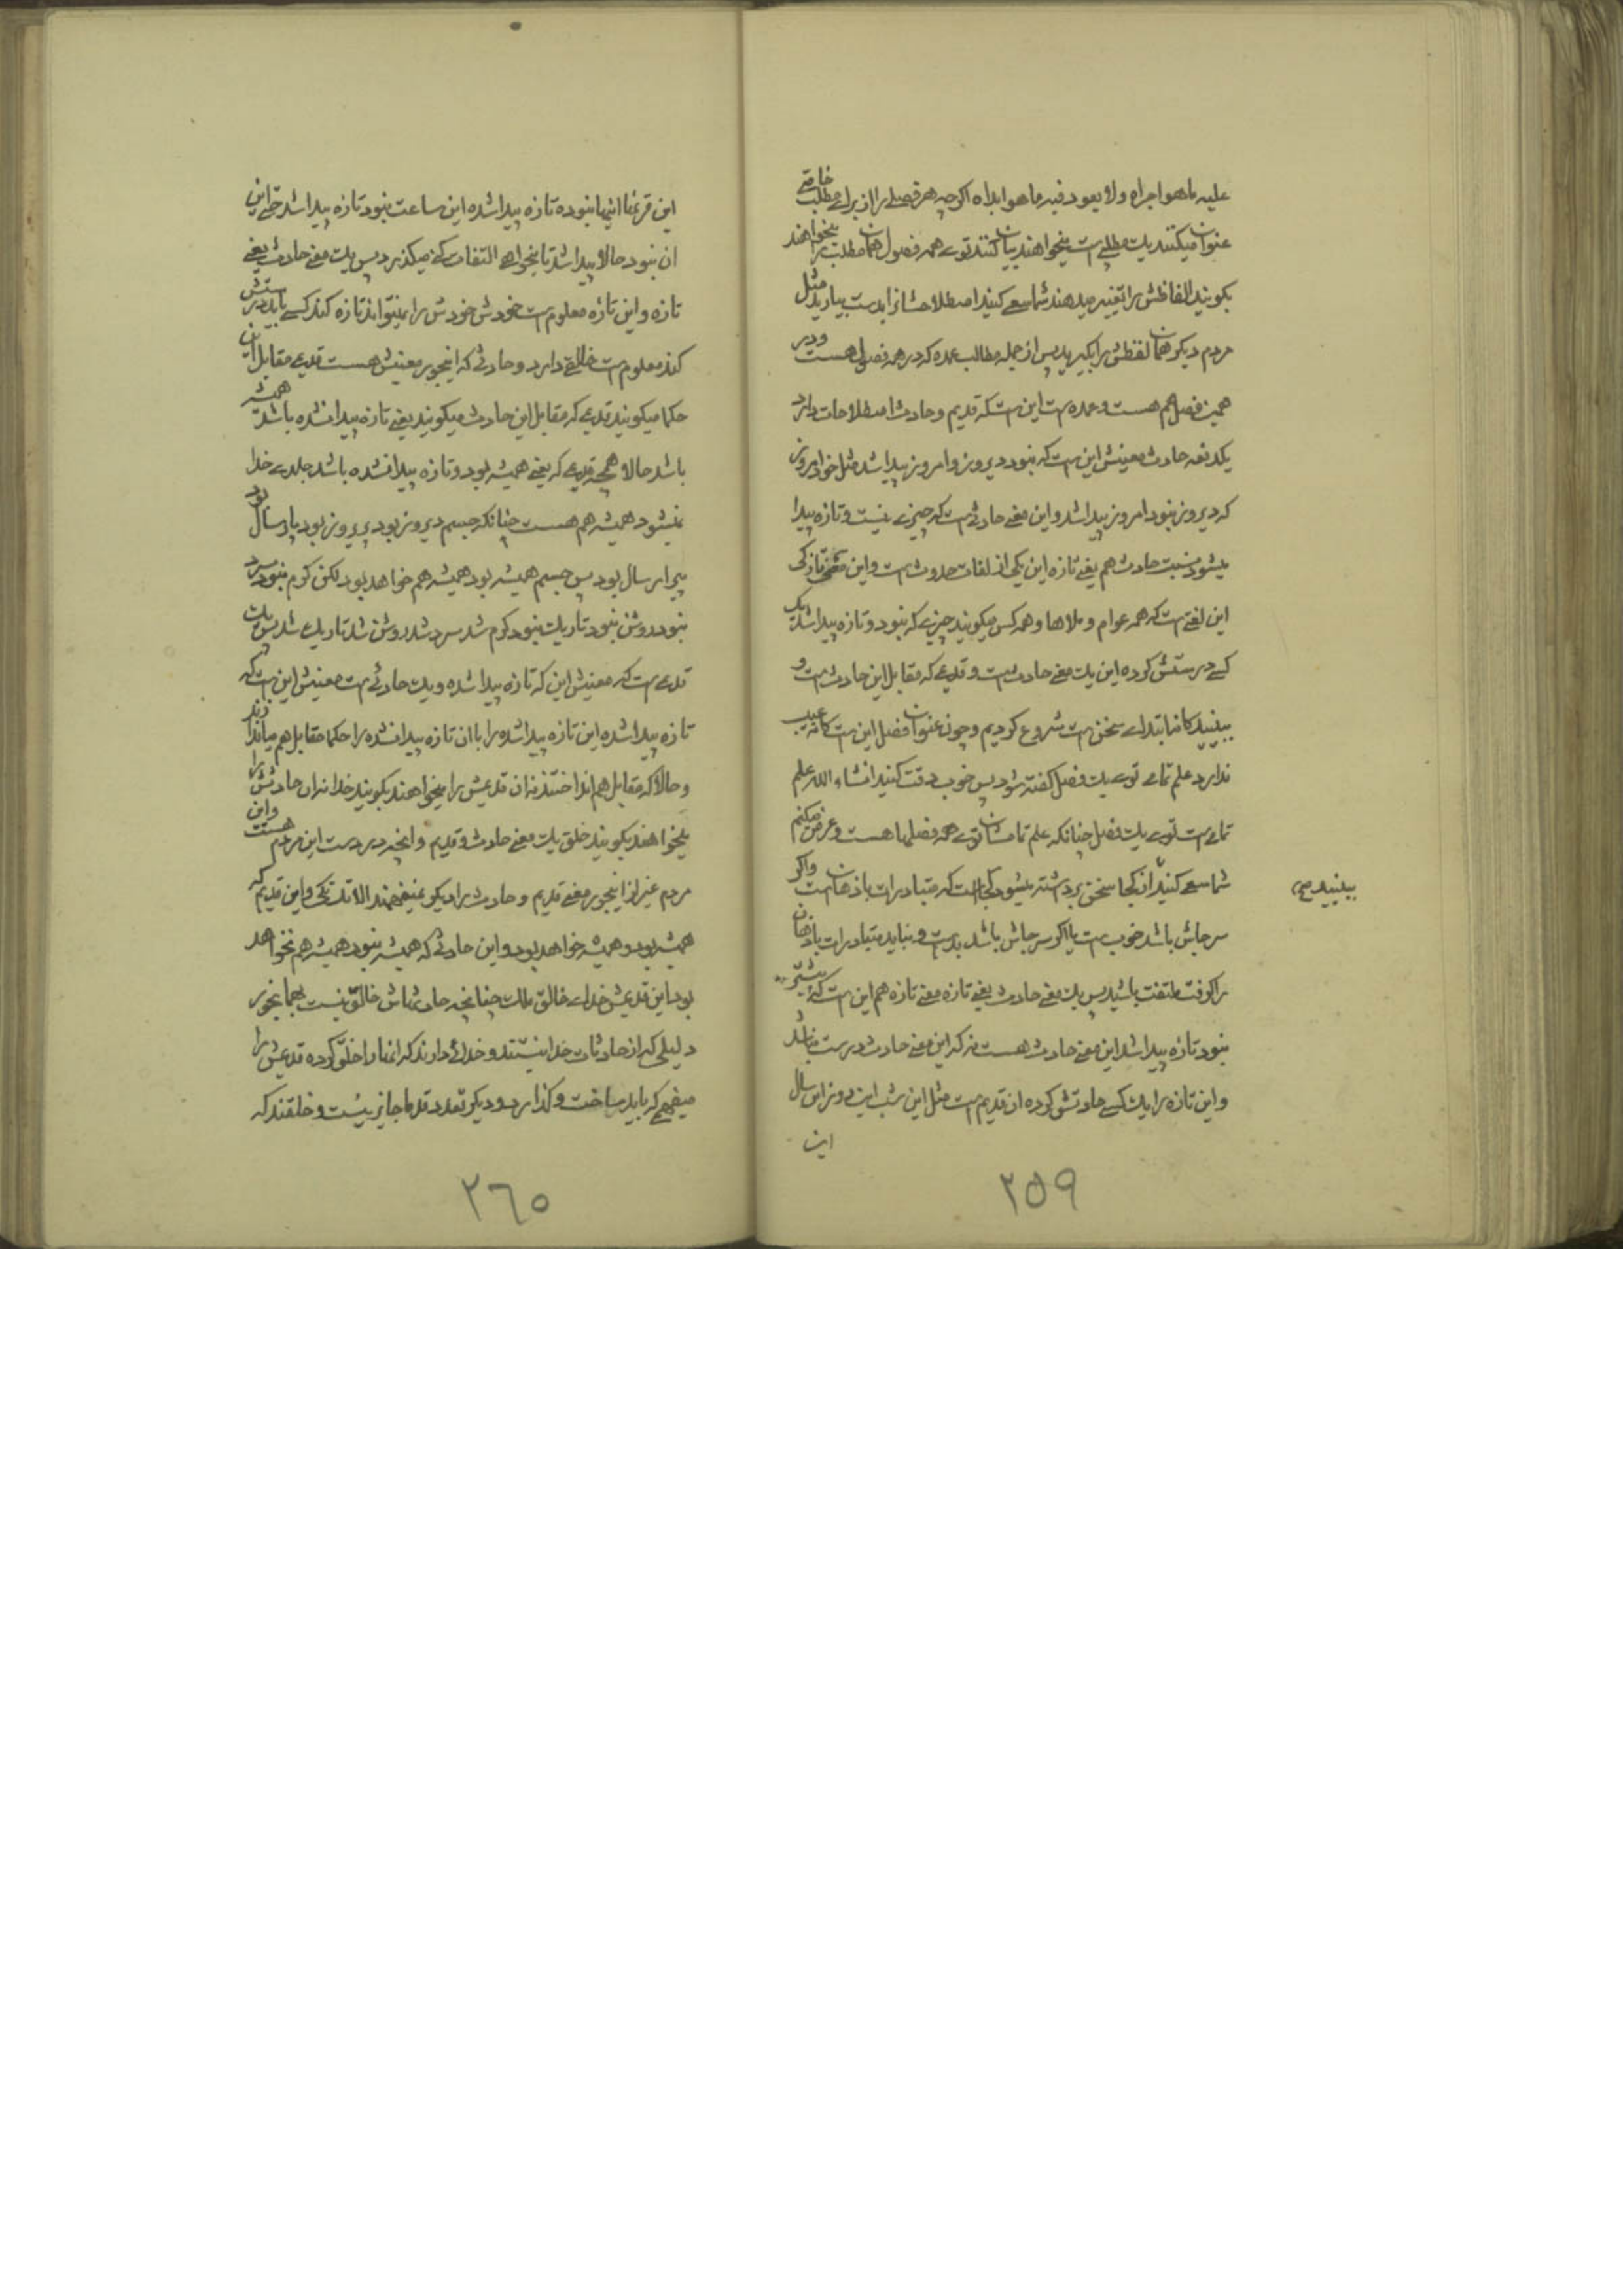 علیه ما هو اجراه ولا یعود فیه ما هو ابداه اکرچه هر فصلی را از برای مطلب خاصی
عنوان میکنند یك مطلبی است میخواهند بیان کنند توی همه فصول همان مطلب را میخواهند
بکویند الفاظش را تغییر میدهند شما سعی کنید اصطلاحشانرا بدست بیاورید مثل
مردم دیکر همان لفظش را بکیرید پس از جمله مطالب عمده که در همه فصول هست و در
همین فصل هم هست و عمده است این است که قدیم و حادث اصطلاحات دارد
یکدفعه حادث معنیش این است که نبود دیروز و امروز پیدا شد مثل خود امروز
که دیروز نبود امروز پیدا شد و این معنی حادثی است که چیزی نیست و تازه پیدا
میشود نسبت حادث هم یعنی تازه این یکی از لغات حدوث است و این معنی تازکی
این لغتی است که همه عوام و ملاها و همه کس میکویند چیزی که نبود و تازه پیدا شد یک
کسی درستش کرده این یك معنی حادث است و قدیمی که مقابل این حادث است و
ببینید کانه ابتدای سخن است شروع کردیم و چون عنوان فصل این است کانه عیب
ندارد علم تمامی توی یك فصل کفته شود پس خوب دقت کنید انشاء الله علم
تمامی است توی یك فصل چنانکه علم تمامشان توی همه فصلها هست و عرض میکنم
شما سعی کنید از کجا سخن برداشته میشود کجا است که متبادرات باذهان است و اکر
ببینید صح
سر جاش باشد خوب است یا اکر سر جاش باشد بد است و نباید متبادرات باذهان
را کرفت ملتفت باشید پس یك معنی حادث یعنی تازه معنی تازه هم این است که پیشتر
نبود تازه پیدا شد این معنی حادث هست نه که این معنی حادث درست نباشد
و این تازه را یك کسی حادثش کرده از قدیم است مثل این شب این روز این سال
این
۲۵۹
این قرنها اینها نبوده تازه پیدا شده این ساعت نبود تازه پیدا شد حتی این
ان نبود حالا پیدا شد تا میخواهی التفات کنی میکذرد پس یك معنی حادث یعنی
تازه و این تازه معلوم است خودش خودش را نمیتواند تازه کند کسی باید درستش
کند معلوم است خالقی دارد و حادثی که اینجور معنیش هست قدیمی مقابل این
حکما میکویند قدیمی که مقابل این حادث میکویند یعنی تازه پیدا نشده باشد همیشه
باشد حالا همچه قدیمی که یعنی همیشه بود و تازه پیدا نشده باشد جلدی خدا
نمیشود همیشه هم هست چنانکه جسم دیروز بود پریروز بود پارسال بود
پیرارسال بود پس جسم همیشه بود همیشه هم خواهد بود لکن کرم نبود سرد
نبود روشن نبود تاریك نبود کرم شد سرد شد روشن شد تاریك شد پس یك
قدیمی است که معنیش این که تازه پیدا شده و یك حادثی است معنیش این است که
تازه پیدا شده این تازه پیدا شده را با ان تازه پیدا نشده را حکما مقابل هم میاندازند
و حالا که مقابل هم انداختند نه ان قدیمش را میخواهند بکویند خدا نه ان حادثش را
میخواهند بکویند خلق یك معنی حادث و قدیم و انچه در دست این مردم هست و این
مردم غیر از اینجور معنی قدیم و حادث را دیکر نمیفهمند الا تك تکی و این قدیم که
همیشه بود و همیشه خواهد بود و این حادثی که همیشه نبود همیشه هم نخواهد
بود این قدیمش خدای خالق ملك چنانچه حادثهاش خالق نیست بهمانجور
دلیلی که از حادثات خدا نیستند و خدائی دارند که انها را خلق کرده قدیمش را
میفهمی که باید ساخت و کذارد و دیکر تعدد قدما جایز نیست و خلقند که
۲٦۰